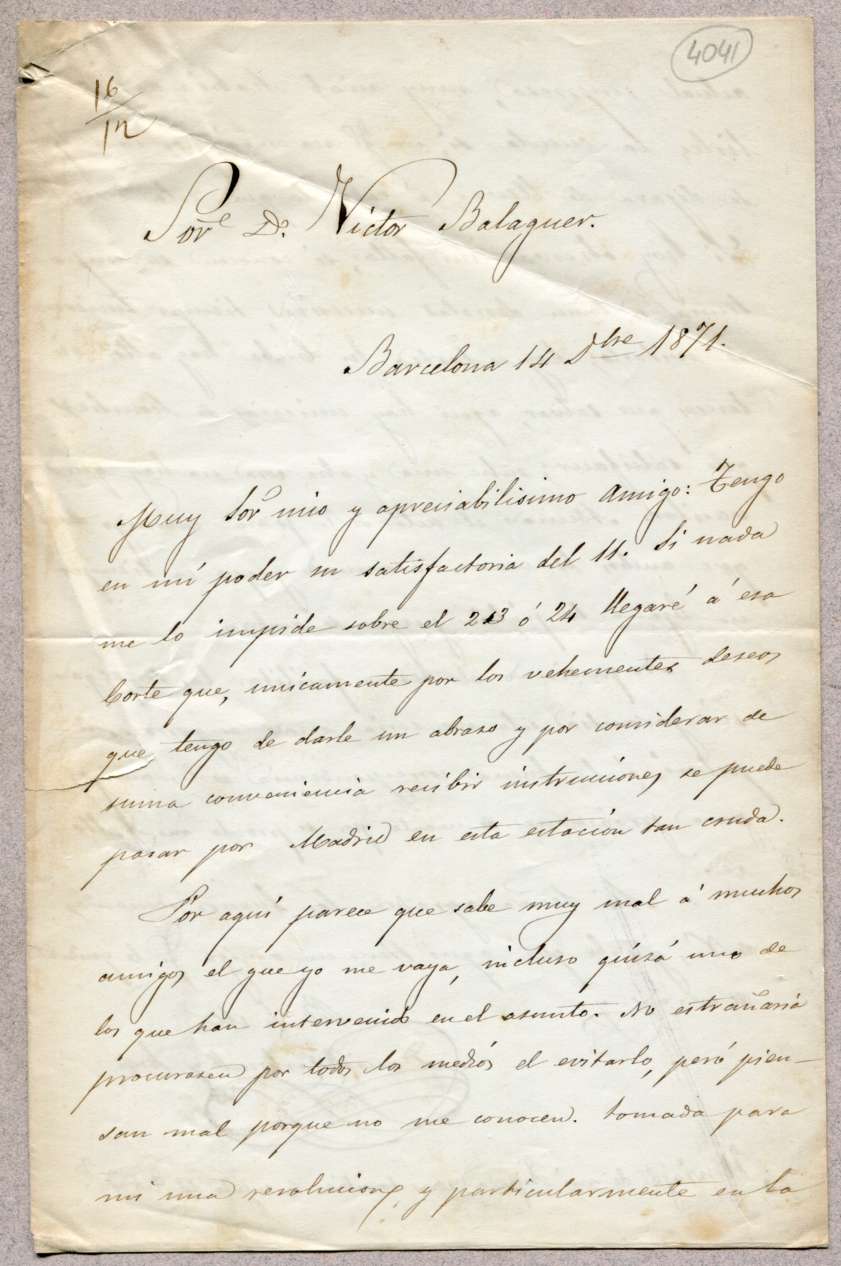 4041
16/12
Sor.e D. Victor Balaguer.
Barcelona 14 Dbre 1871.
Muy Sor mio y apreciabilisimo amigo: Tengo
en mi poder su satisfactoria del 11. Si nada
me lo impide sobre el 23 ó 24 llegaré á esa
Corte que, unicamente por los vehementes deseos
que tengo de darle un abraso y por considerar de
suma conveniencia recibir instrucciones se puede
pasar por Madrid en esta estación tan cruda.
Por aquí parece que sabe muy mal á muchos
amigos el que yo me vaya, incluso quisá uno de
los que han intervenido en el asunto. No estrañaria
procurasen por todos los medios el evitarlo, peró pien-
san mal porque no me conocen. Tomada para
mi una resolucion, y particularmente en la